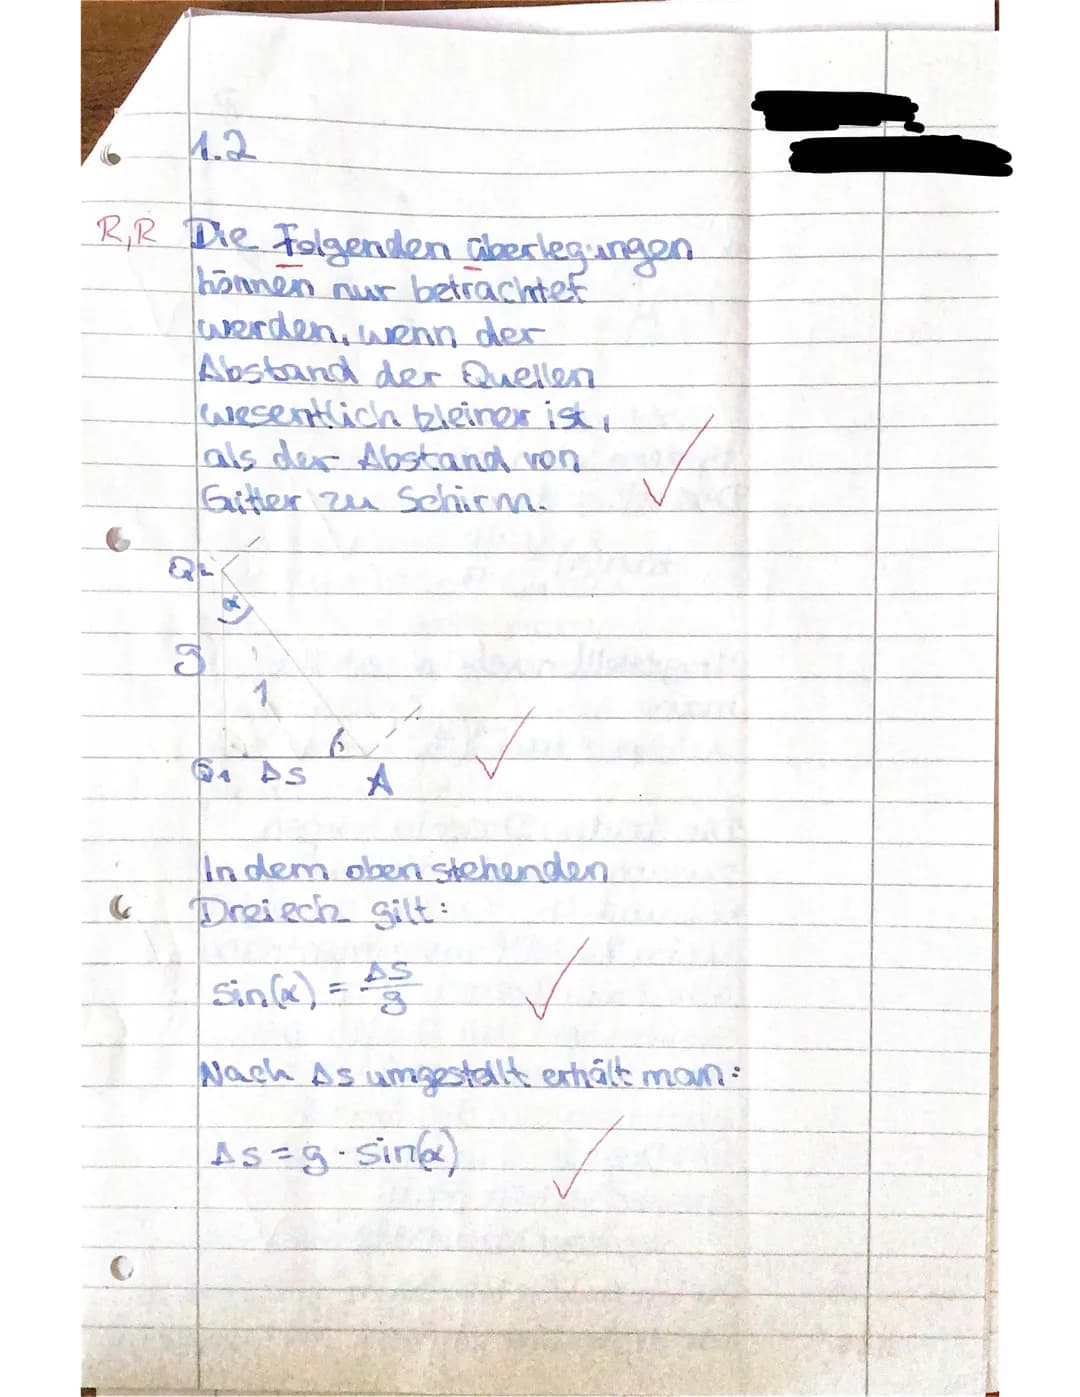 1.2
R,R Die Folgenden überlegungen
können nur betrachtet
werden, wenn der
Abstand der Quellen
wesentlich kleiner ist,
als der Abstand von
Gitter zu Schirm.
Q2
α
g
1
b
Q1 Δs A
In dem oben stehenden
Dreieck gilt:
sin(α) = Δs/g
Nach Δs umgestellt erhält man:
Δs = g · sin(α)